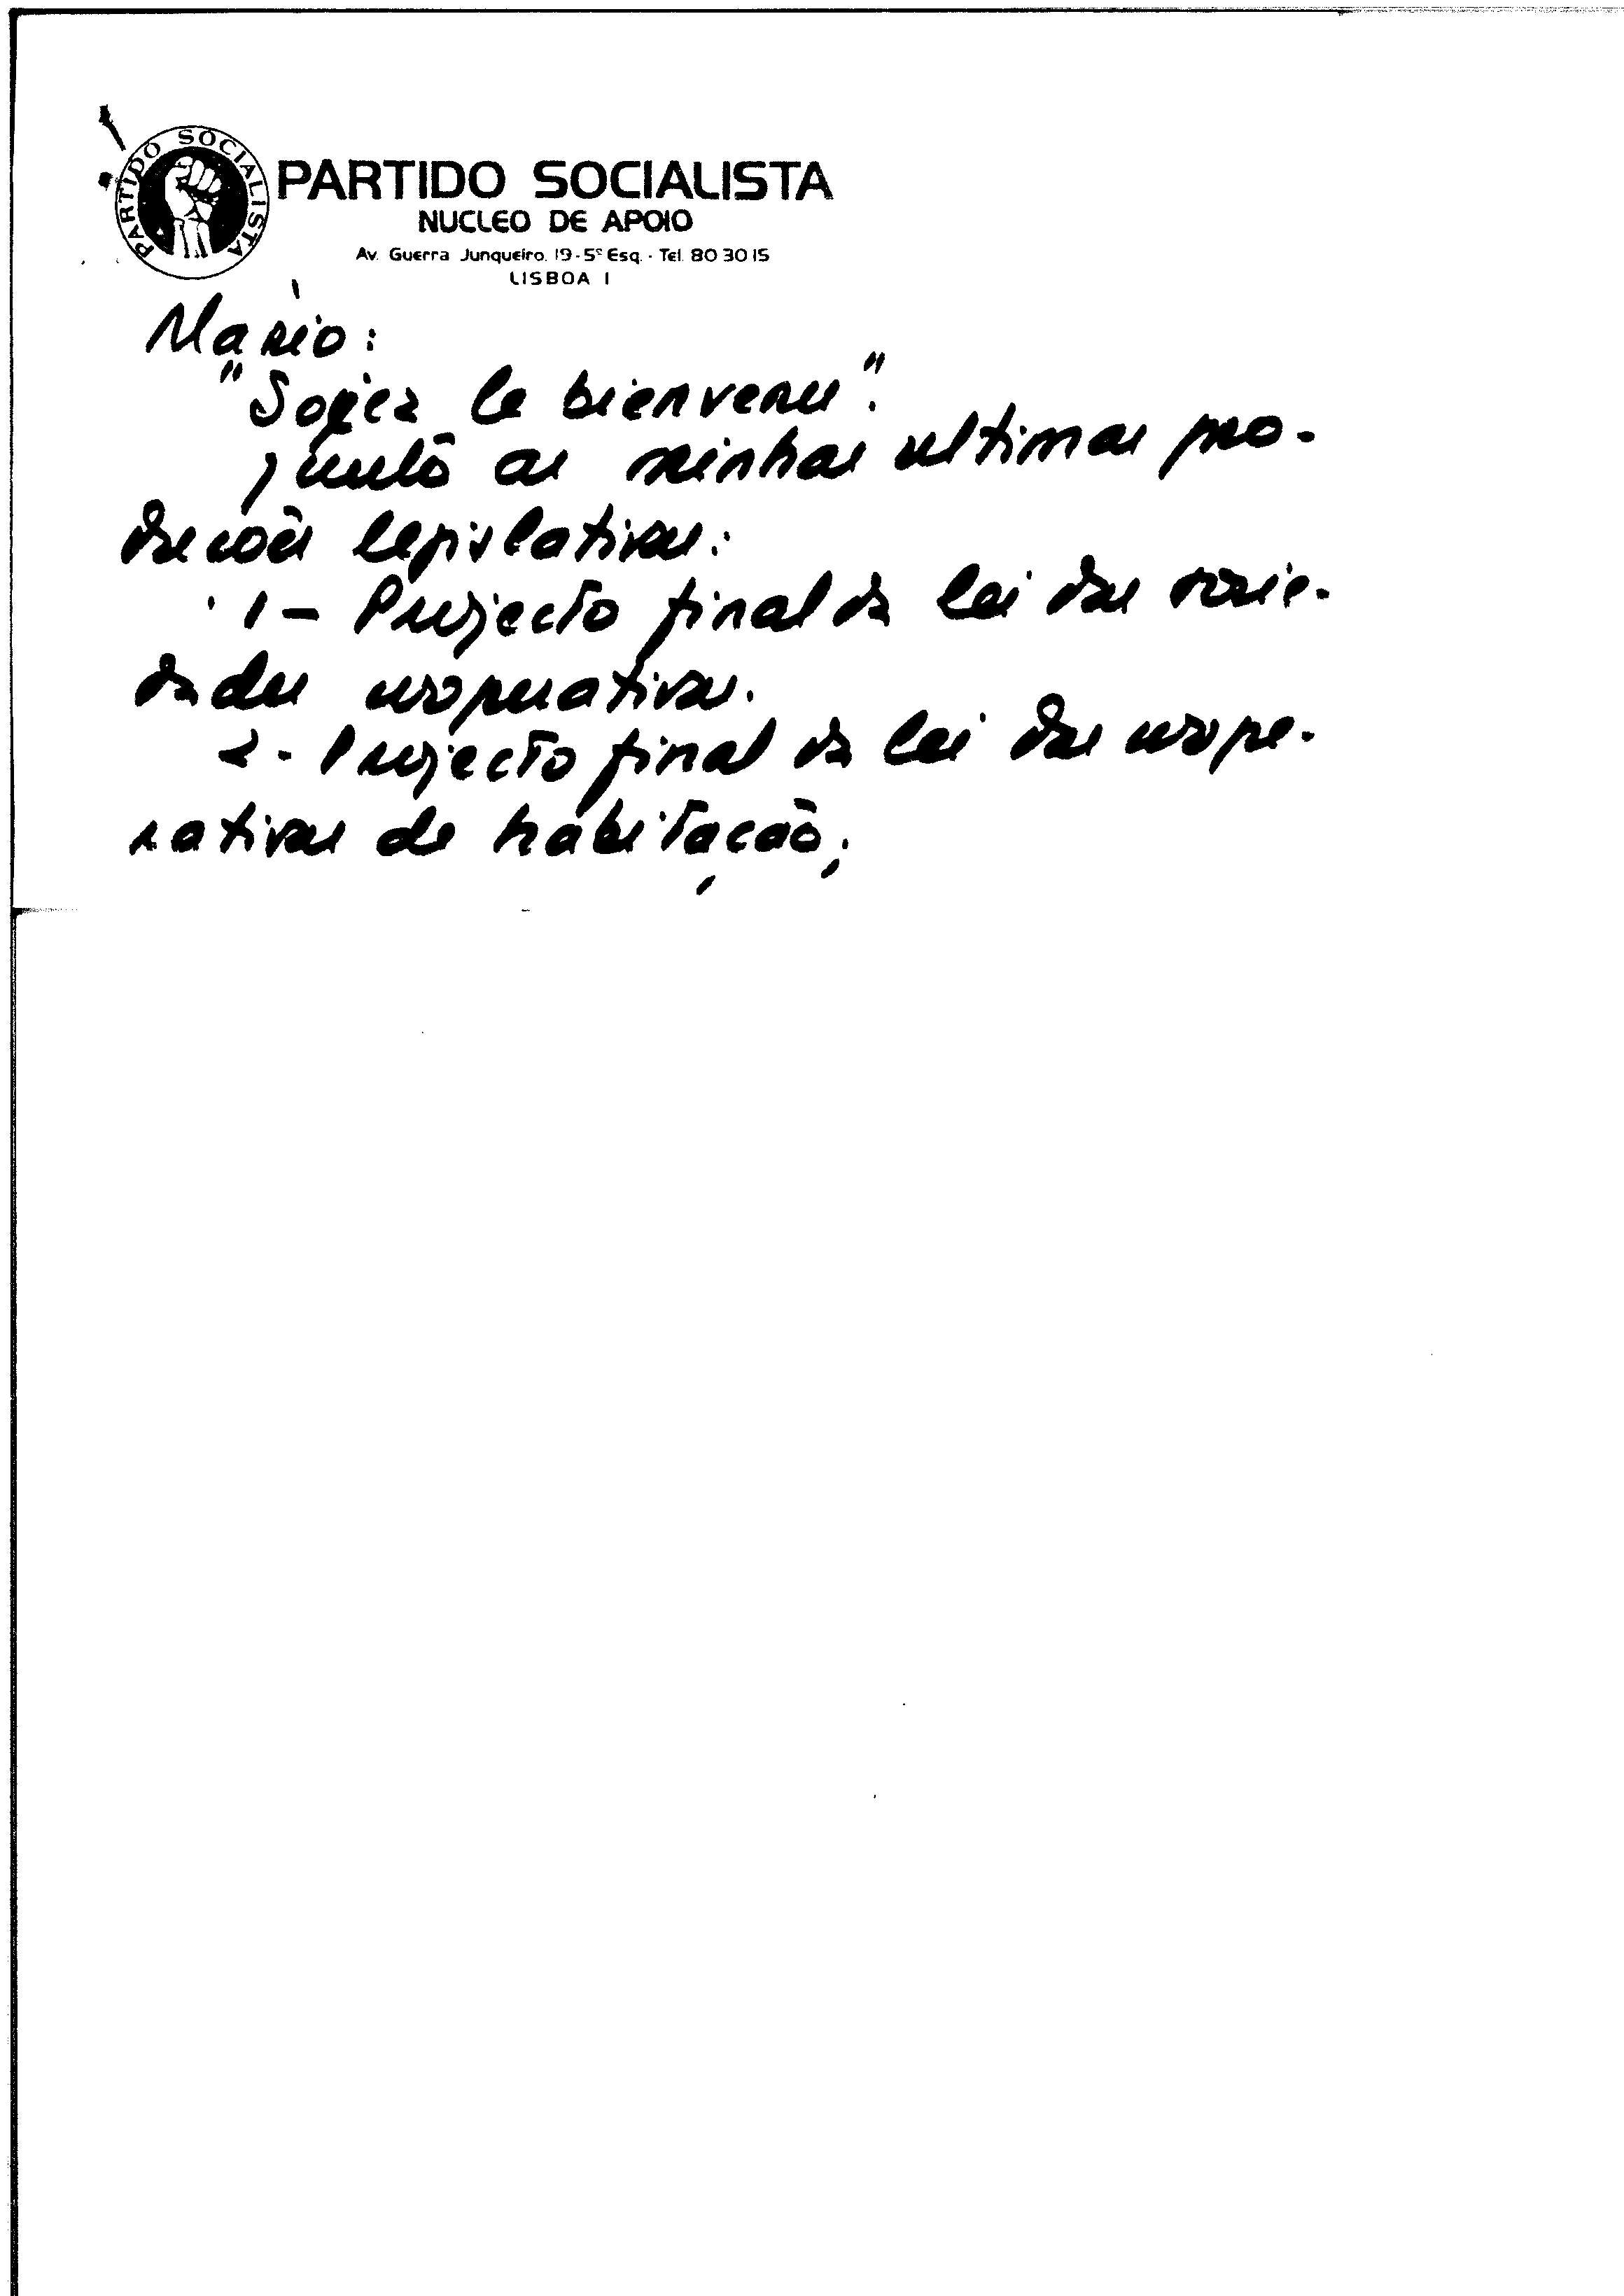 PARTIDO SOCIALISTA
PARTIDO SOCIALISTA
NUCLEO DE APOIO
Av. Guerra Junqueiro. 19-5º Esq. - Tel. 80 30 15
LISBOA 1
Mário:
"Soyez le bienvenu".
Junto as minhas ultimas pro-
ducões legislativas:
1 - Projecto final da lei das socie-
dades cooperativas.
2 - Projecto final da lei das coope-
rativas de habitação;